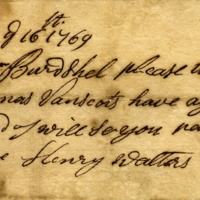 st
d 16 1769
Burdshel please to
mas Vanscoit have a
d I will see you pa
e Henry Walters